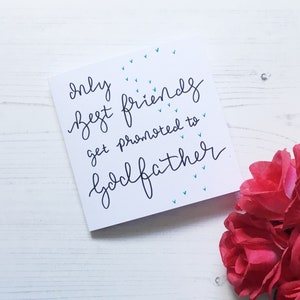 only
best friends
get promoted to
Godfather